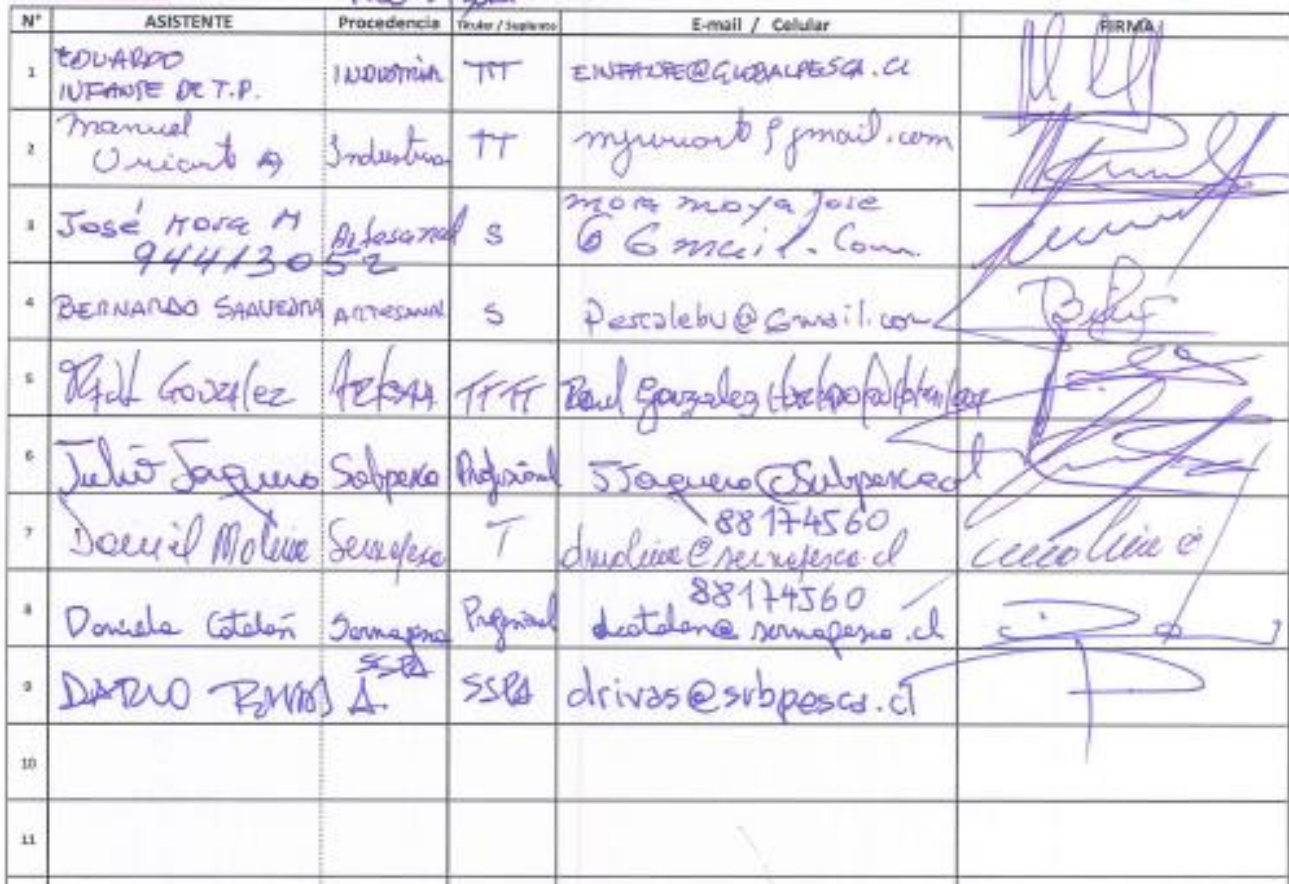 N° ASISTENTE Procedencia Titular / Suplente E-mail / Celular FIRMA
1 EDUARDO INFANTE DE T.P. INDUSTRIA TIT EINFANTE@GLOBALPESCA.CL
2 Manuel Uriarte A Industria TT @gmail.com
3 José Mora M Artesanal S mora moya Jose
944413052 @ Gmail. Com
4 BERNARDO SAAVEDRA ARTESANAL S Pescalebu@Gmail.com
5 Raúl González Raul Gonzalez
6 Julio Jaquero Subpesca Profesional JJaquero@Subpesca.cl
88174560
7 Daniel Molina Sernapesca T dmolina@sernapesca.cl
88174560
8 Daniela Catalán Sernapesca Profesional dcatalan@sernapesca.cl
SSPA
9 DARIO RIVAS A. SSPA drivas@subpesca.cl
10
11